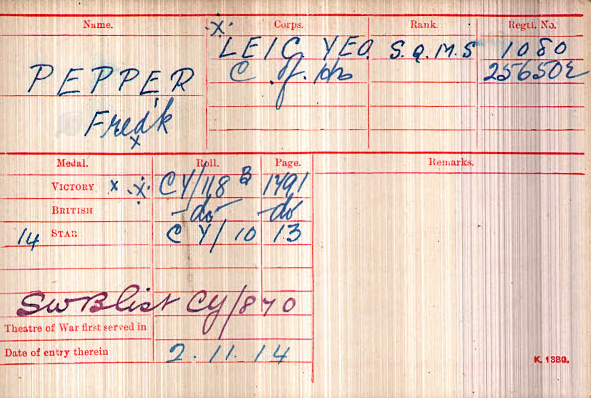 Name. Corps. Rank. Regtl. No.
LEIC YEO. S.Q.M.S 1080
PEPPER C of 256502
Fred'k
Medal. Roll. Page. Remarks.
VICTORY x CY/118 B 1791
BRITISH -do- -do-
14 STAR C Y/10 13
SWB list CY/870
Theatre of War first served in
Date of entry therein 2.11.14
K. 1380.